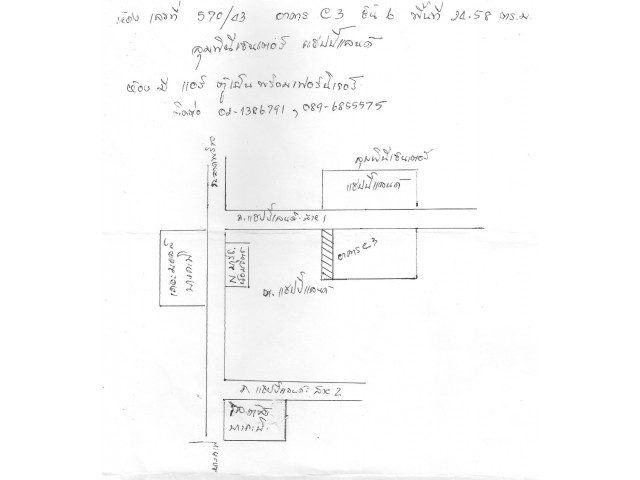 ห้อง เลขที่ 570/43 อาคาร C3 ชั้น 6 พื้นที่ 24.58 ตร.ม.
ลุมพินีเซนเตอร์ แฮปปี้แลนด์
ห้อง มี แอร์ ตู้เย็น พร้อมเฟอร์นิเจอร์
ติดต่อ 02-1386791, 089-6855575
ถ.ลาดพร้าว
ลุมพินีเซนเตอร์
แฮปปี้แลนด์
ถ.แฮปปี้แลนด์ สาย 1
เดอะมอลล์
บางกะปิ
อาคาร C.3
ต. แฮปปี้แลนด์
ถ. แฮปปี้แลนด์ สาย 2
บางกะปิ
บางกะปิ